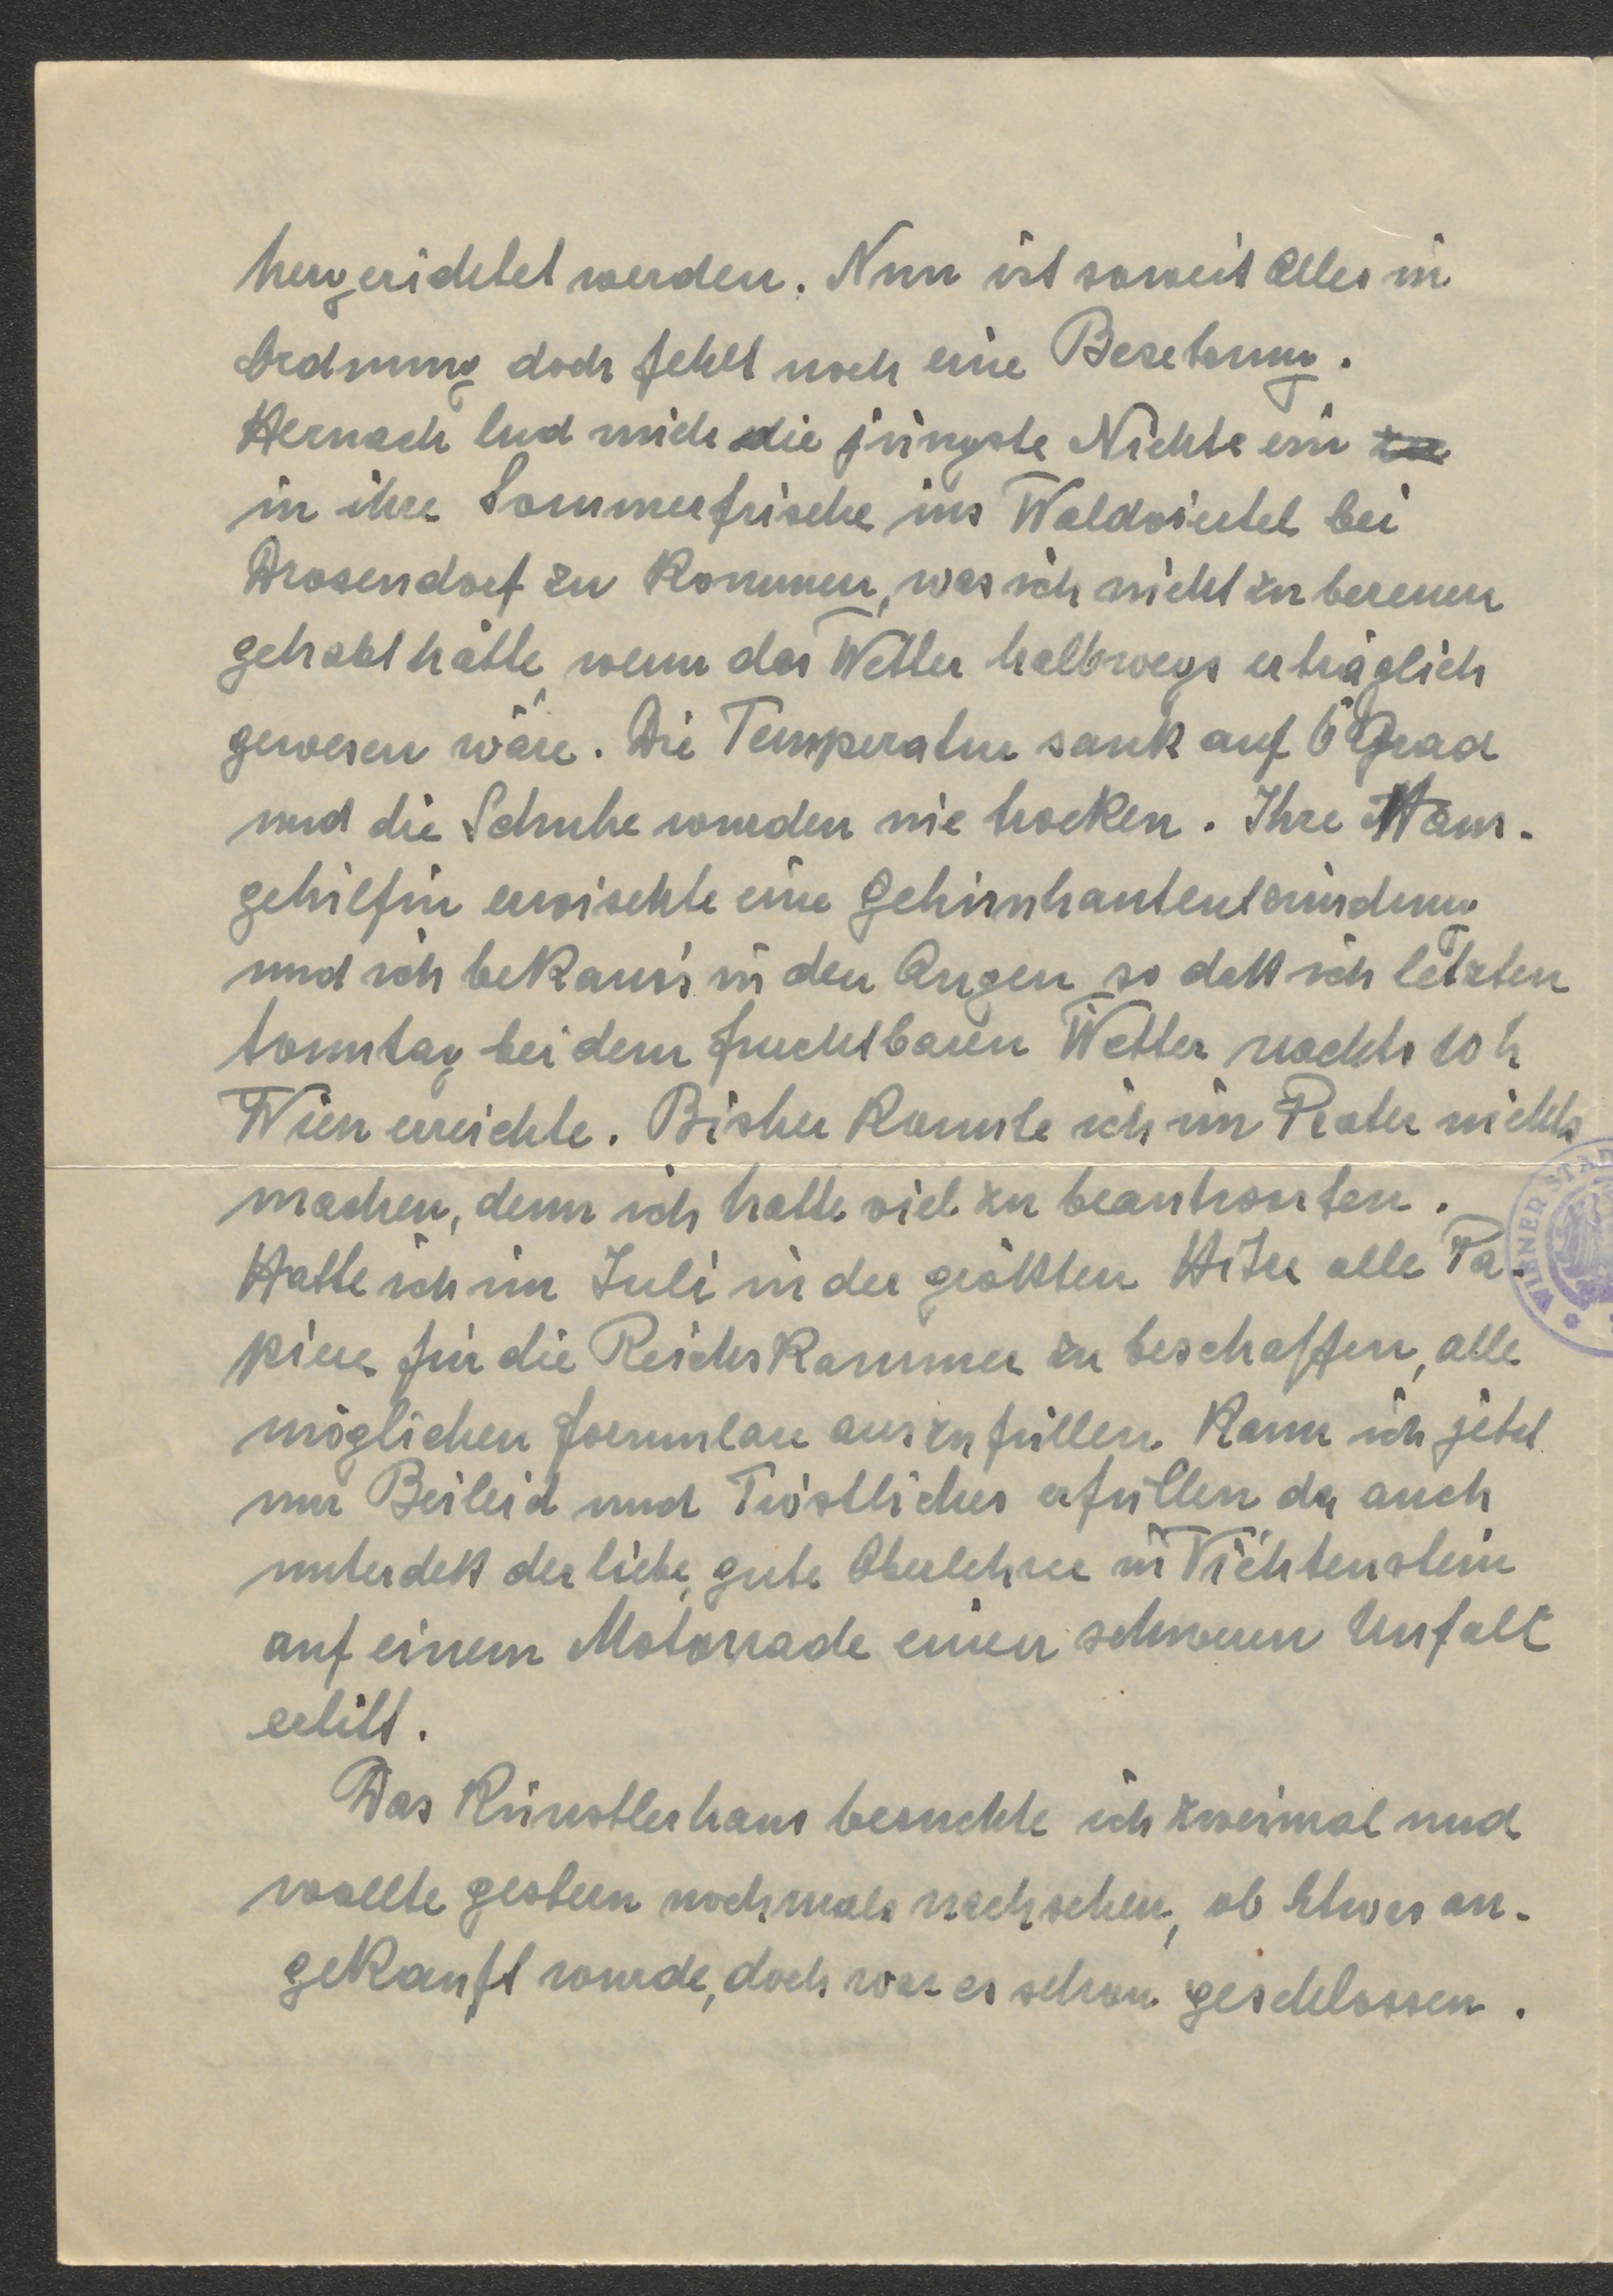 hergerichtet werden. Nun ist soweit Alles in
Ordnung doch fehlt noch eine Besetzung.
Hernach lud mich die jüngste Nichte ein zu
in ihre Sommerfrische ins Waldviertel bei
Drosendorf zu Kommen, was ich nicht zu bereuen
gehabt hätte, wenn das Wetter halbwegs erträglich
gewesen wäre. Die Temperatur sank auf 6 Grad
und die Schuhe wurden nie trocken. Ihre Haus-
gehilfin erwischte eine Gehirnhautentzündung
und ich bekam's in den Augen so daß ich letzten
Sonntag bei dem furchtbaren Wetter nachts 10 h
Wien erreichte. Bisher Konnte ich im Prater nichts
machen, denn ich hatte viel zu beantworten.
Hatte ich im Juli in der größten Hitze alle Pa-
piere für die Reichskammer zu beschaffen, alle
möglichen Formulare auszufüllen Kann ich jetzt
nur Beileid und Tröstliches erfüllen da auch
unterdeß der liebe, gute Oberlehrer in Vichtenstein
auf einem Motorrade einen schweren Unfall
erlitt.
Das Künstlerhaus besuchte ich zweimal und
wollte gestern nochmals nachsehen, ob Etwas an-
gekauft wurde, doch war es schon geschlossen.
WIENER STAD